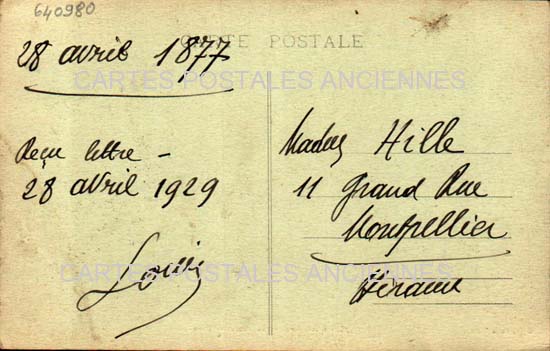 640980
CARTE POSTALE
28 avril 1877
CARTES POSTALES ANCIENNES
Reçu lettre -
28 avril 1929
Hille
11 Grand Rue
Montpellier
Hérault
CARTES POSTALES ANCIENNES